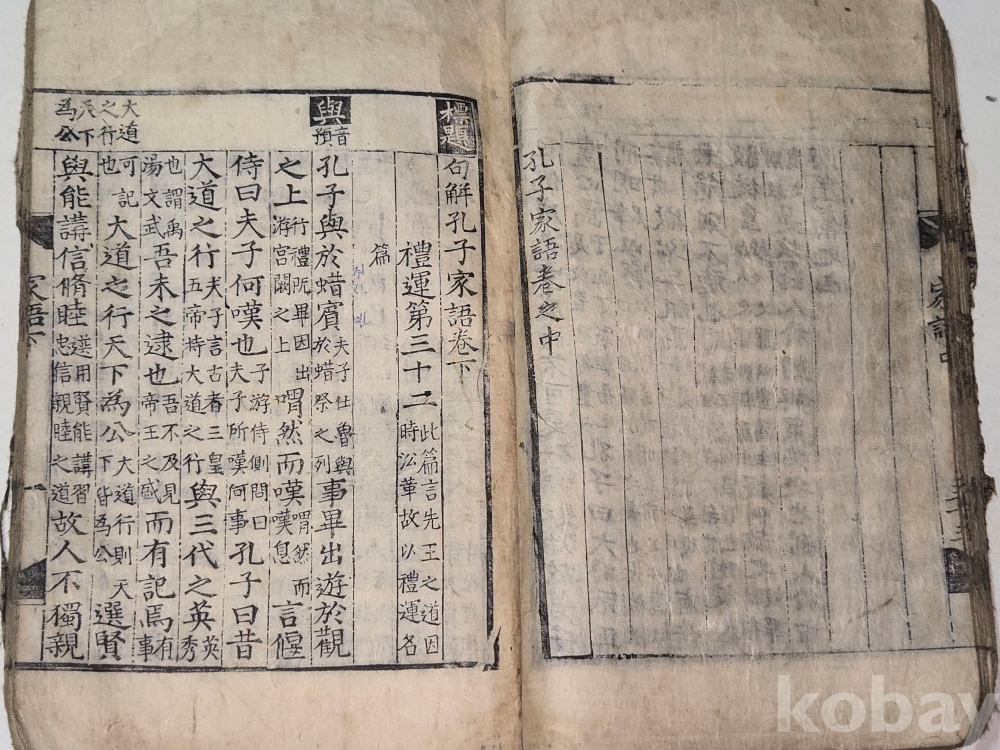 家語中
孔子家語卷之中
標題句解孔子家語卷下
與音預
大道之行天下為公
禮運第三十二此篇言先王之道因時沿革故以禮運名
篇
孔子與於蜡賓夫子仕魯與於蜡祭之列事畢出遊於觀
之上行禮既畢因出游宮闕之上喟然而嘆喟然而嘆息言偃
侍曰夫子何嘆也子游侍側問曰夫子所嘆何事孔子曰昔
大道之行夫子言古者三皇五帝持大道之行與三代之英英秀
也謂禹湯文武吾未之逮也吾不及見帝王之盛而有記焉有事
可記也大道之行天下為公大道行則天下皆為公選賢
與能講信脩睦選用賢能講習忠信親睦之道故人不獨親
家語下
kobay